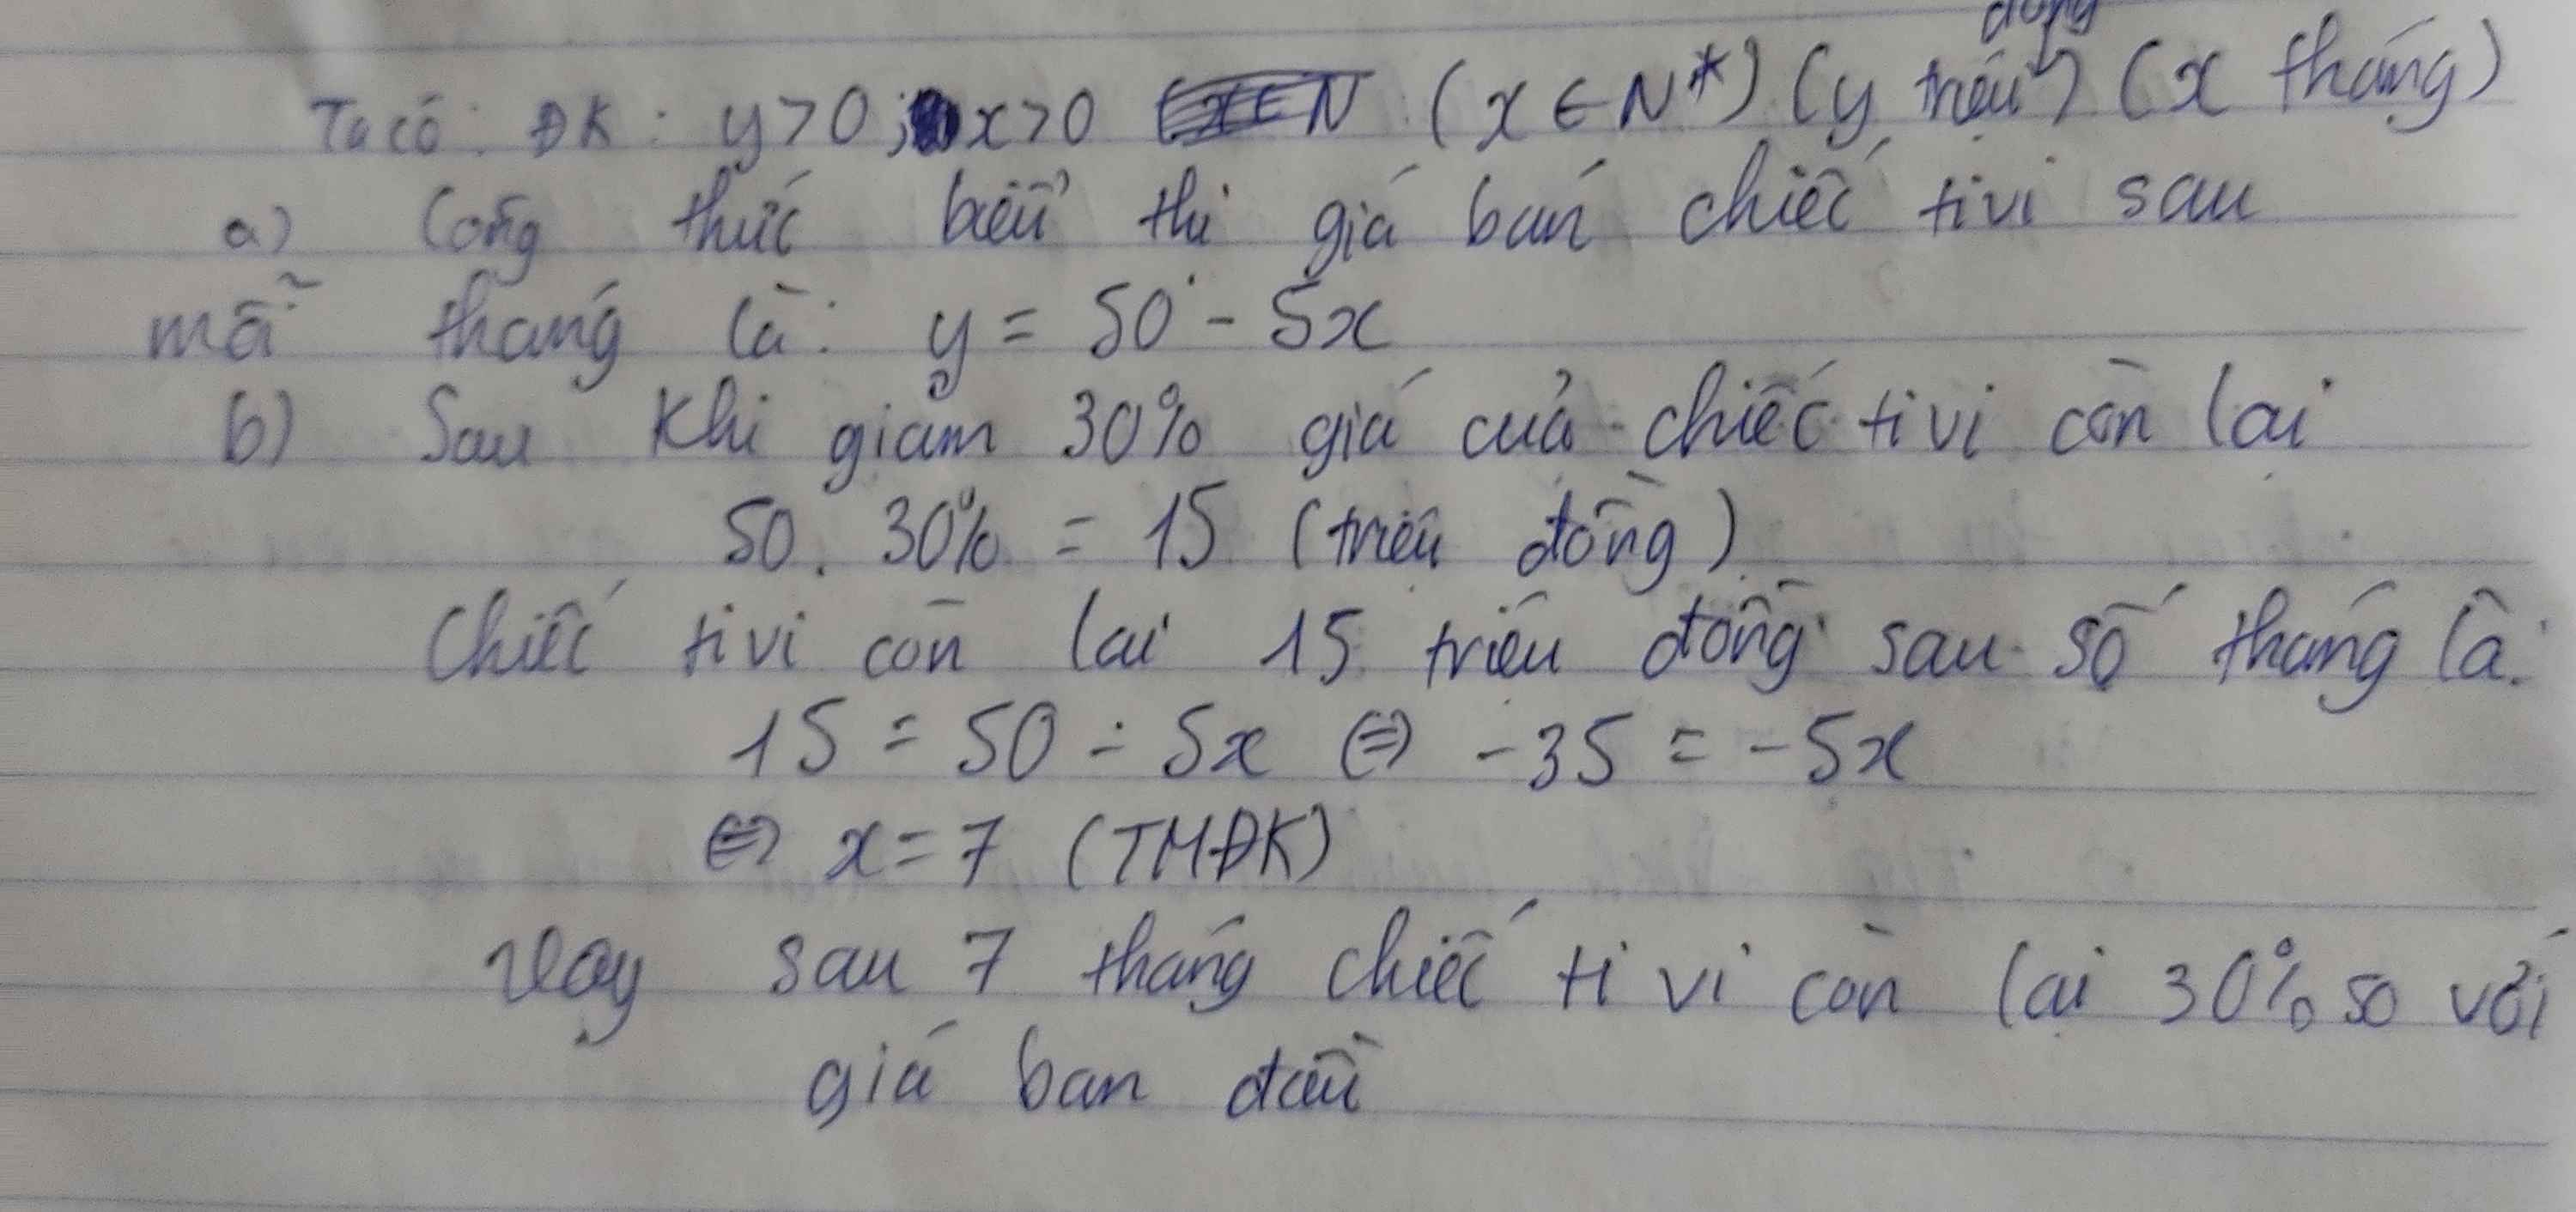 đồng
Ta có: ĐK: y>0; x>0 (x∈N (x∈N*) (y triệu) (x tháng)
a) Công thức biểu thị giá bán chiếc tivi sau
mỗi tháng là: y = 50 - 5x
b) Sau khi giảm 30% giá của chiếc tivi còn lại
50. 30% = 15 (triệu đồng)
Chiếc tivi còn lại 15 triệu đồng sau số tháng là:
15 = 50 - 5x ⇔ -35 = -5x
⇔ x=7 (TMĐK)
Vậy sau 7 tháng chiếc ti vi còn lại 30% so với
giá ban đầu